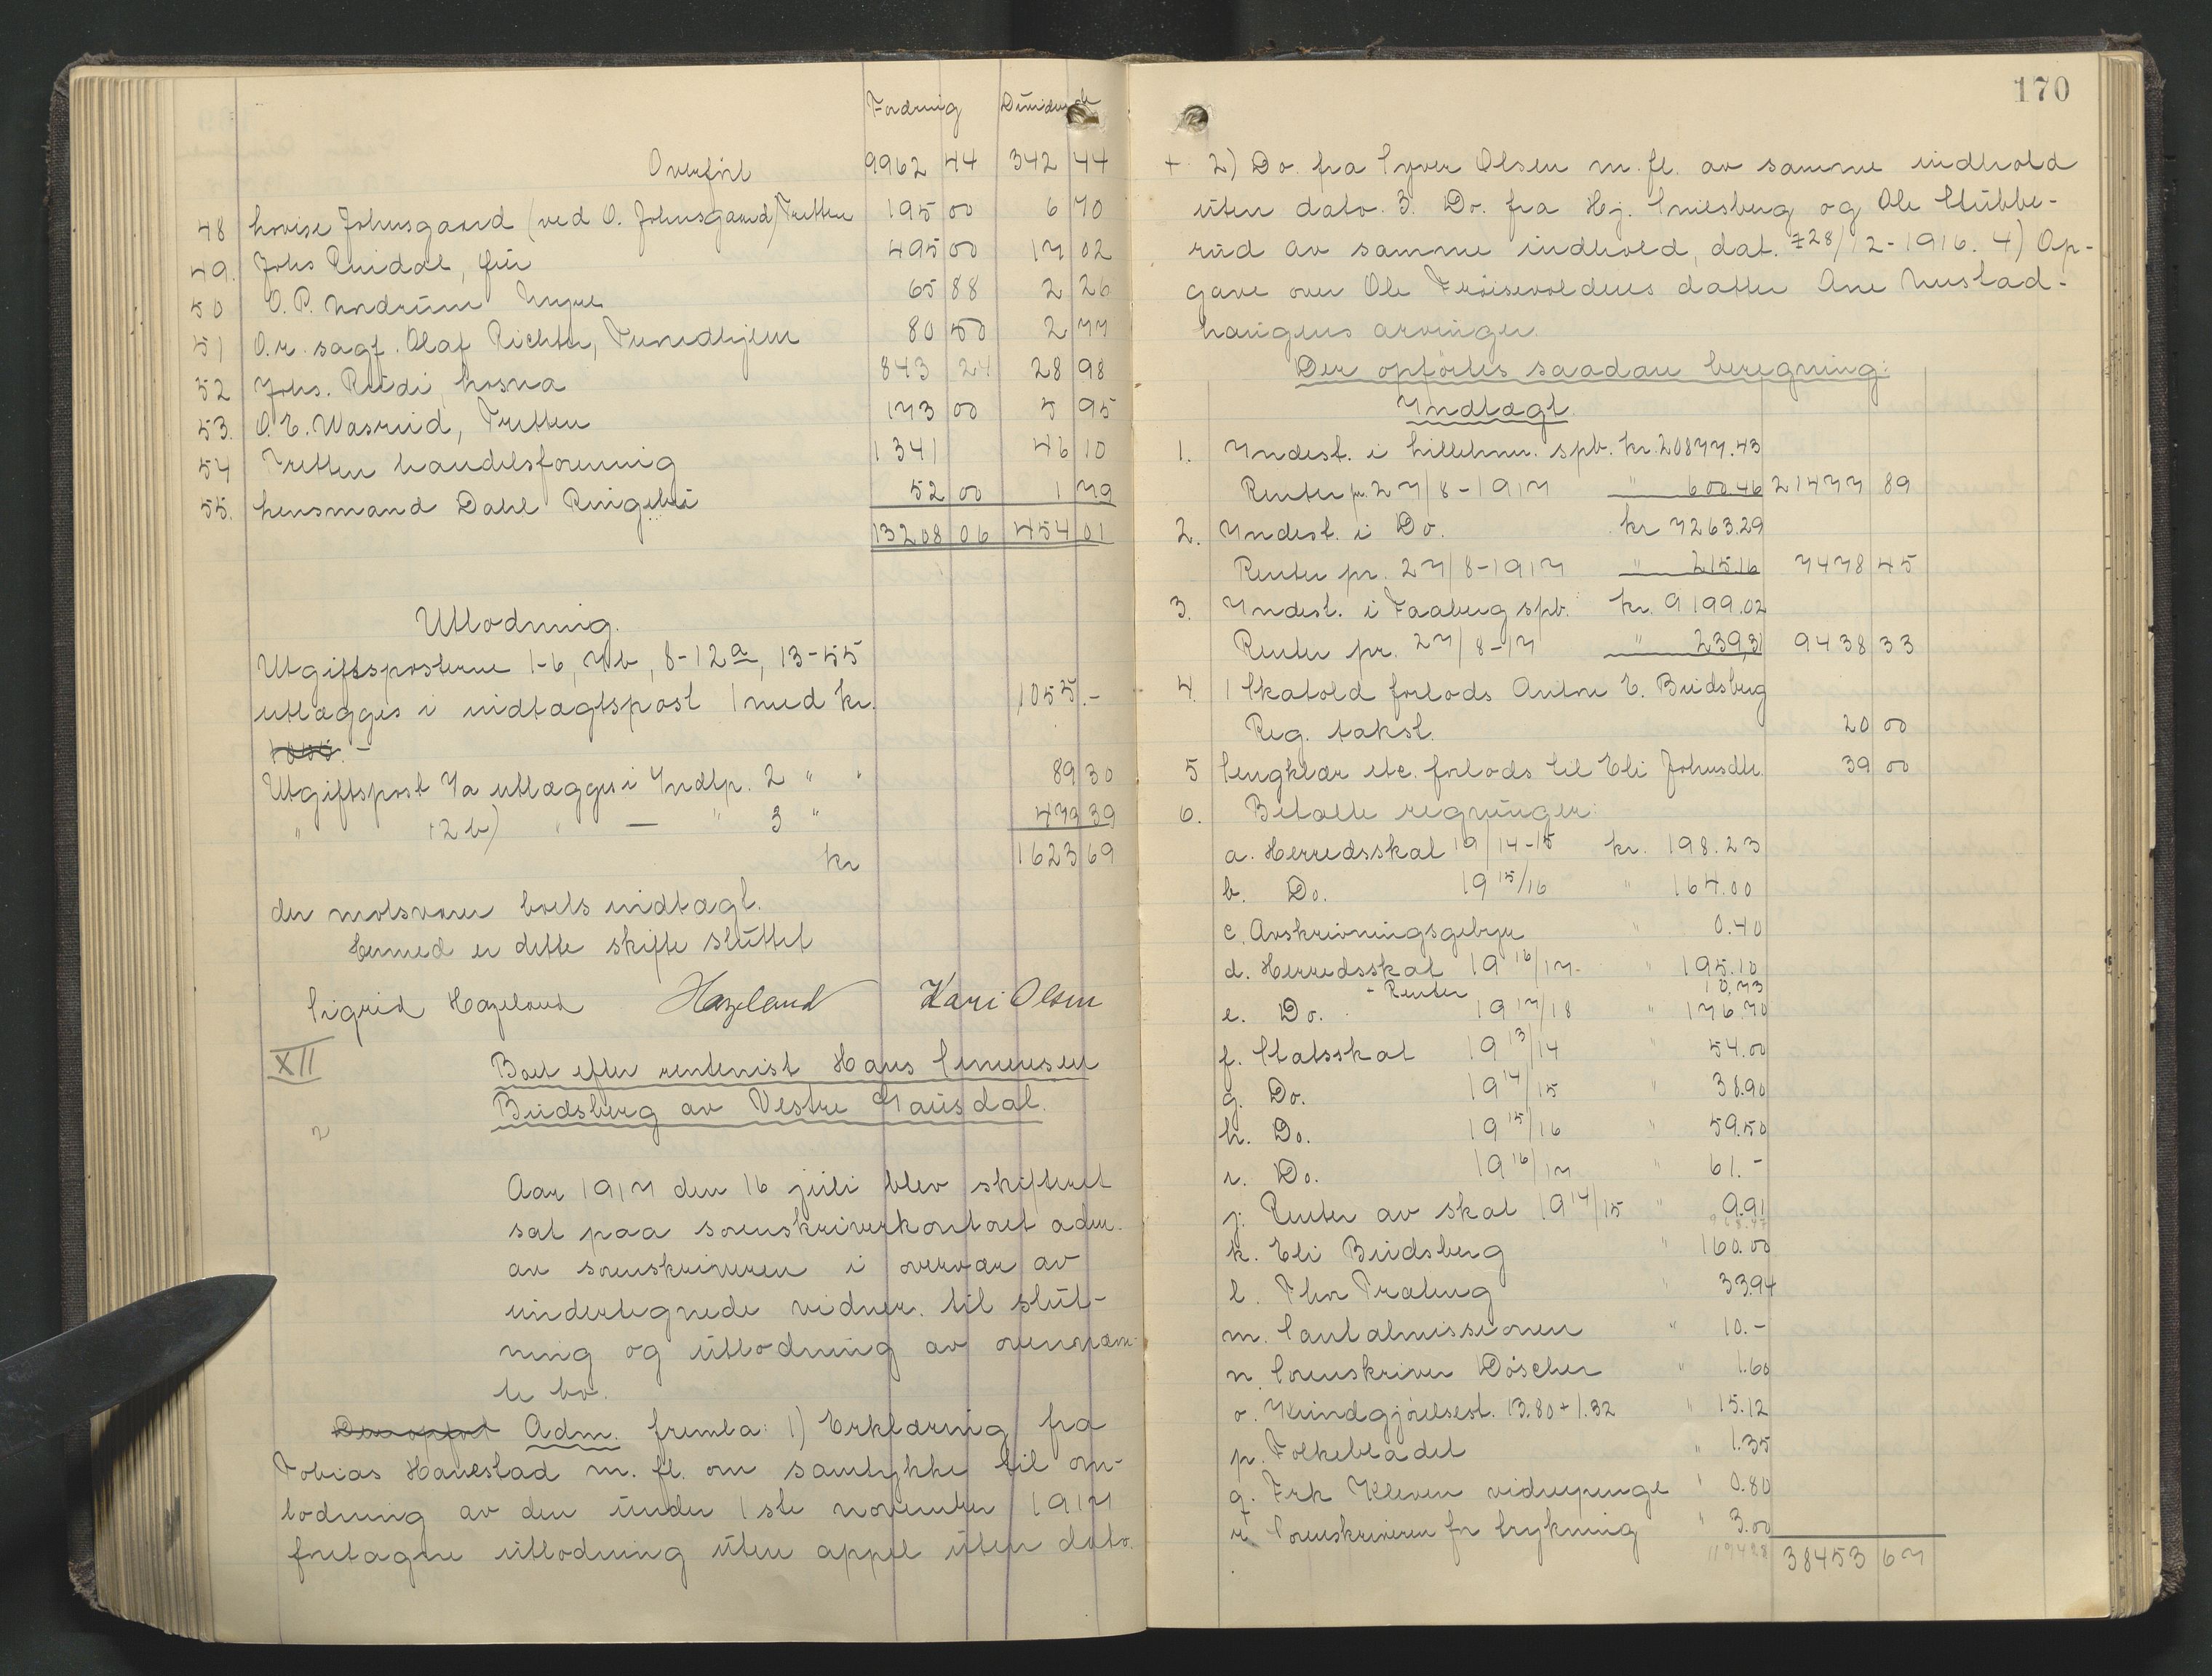 Fordring Dividende
Overført 9962 44 342 44
48 Lovise Johnsgaard (ved O. Johnsgaard) Tretten 195 00 6 70
49. Johs Ruddi, fru 495 00 17 02
50 O. P. Undrum Myre 65 88 2 26
51 O.r. sagf. Olaf Richter, Trondhjem 80 50 2 77
52 Johs. Rudi, Losna 843 24 28 98
53. O. E. Wasrud, Tretten 173 00 5 95
54 Tretten handelsforening 1341 46 10
55. Lensmand Dahl Ringebu 52 00 1 79
13208 06 454 01
Utlodning.
Utgiftsposterne 1-6, 7b, 8-12a, 13-55
utlægges i indtægtspost 1 med kr. 1055.-
1055.-
Utgiftspost 7a utlægges i Indtp. 2 " " 89 30
" 12 b) " — " 3 " 479 39
kr 1623 69
der motsvarer boets indtægt.
Hermed er dette skifte sluttet
Sigrid Hazeland Hazeland Kari Olsen
XII Boet efter rentenist Hans Simensen
Budsberg av Vestre Gausdal.
2
Aar 1917 den 16 juli blev skifteret
sat paa sorenskriverkontoret adm.
av sorenskriveren i overvær av
undertegnede vidner. til slut-
ning og utlodning av ovennævn-
te bo.
Der opført Adm. fremla: 1) Erklæring fra
Tobias Hanestad m. fl. om samtykke til om-
lodning av den under 1ste november 1917
foretagne utlodning uten appel uten dato.
170
+ 2) Do. fra Syver Olsen m. fl. av samme indhold
uten dato. 3. Do. fra Hj. Sniesberg og Ole Stubbe-
rud av samme indhold, dat. 28/12-1916. 4) Op-
gave over Ole Frøisevoldens datter Ane Nustad-
haugens arvinger.
Der opførtes saadan beregning:
Indtægt
1. Indest. i Lillehmr. spb. kr. 20877.43
Renter pr. 27/8-1917 " 600.46 21477 89
2. Indest. i Do. kr 7263.29
Renter pr. 27/8-1917 " 215.16 7478 45
3. Indest. i Faaberg spb. kr. 9199.02
Renter pr. 27/8-17 " 239,31 9438 33
4. 1 Skatold forlods Anine E. Budsberg
Reg. takst. 20 00
5 Sengklær etc. forlods til Eli Johnsdtr. 39 00
6. Betalte regninger:
a. Herredsskat 19/14-15 kr. 198.23
b. Do. 19 15/16 " 164.00
c. Avskrivningsgebyr " 0.40
d. Herredsskat 19 16/17 " 195.10
- Renter 10,73
e. Do. 19 17/18 " 176.70
f. Statsskat 19 13/14 " 54.00
g. Do. 19 14/15 " 38.90
h. Do. 19 15/16 " 59.50
i. Do. 19 16/17 " 61.-
j. Renter av skat 19 14/15 " 9.91
968.47
k. Eli Budsberg " 160.00
l. Thor Fraberg " 33.94
m. Santalmissionen " 10.-
n. Sorenskriver Döscher " 1.60
o. Kundgjørelsest. 13.80 + 1.32 " 15.12
p. Folkebladet " 1.35
q. Frk Kleven vidnepenge " 0.80
r. Sorenskriveren for trykning " 3.00
1194 28 38453 67